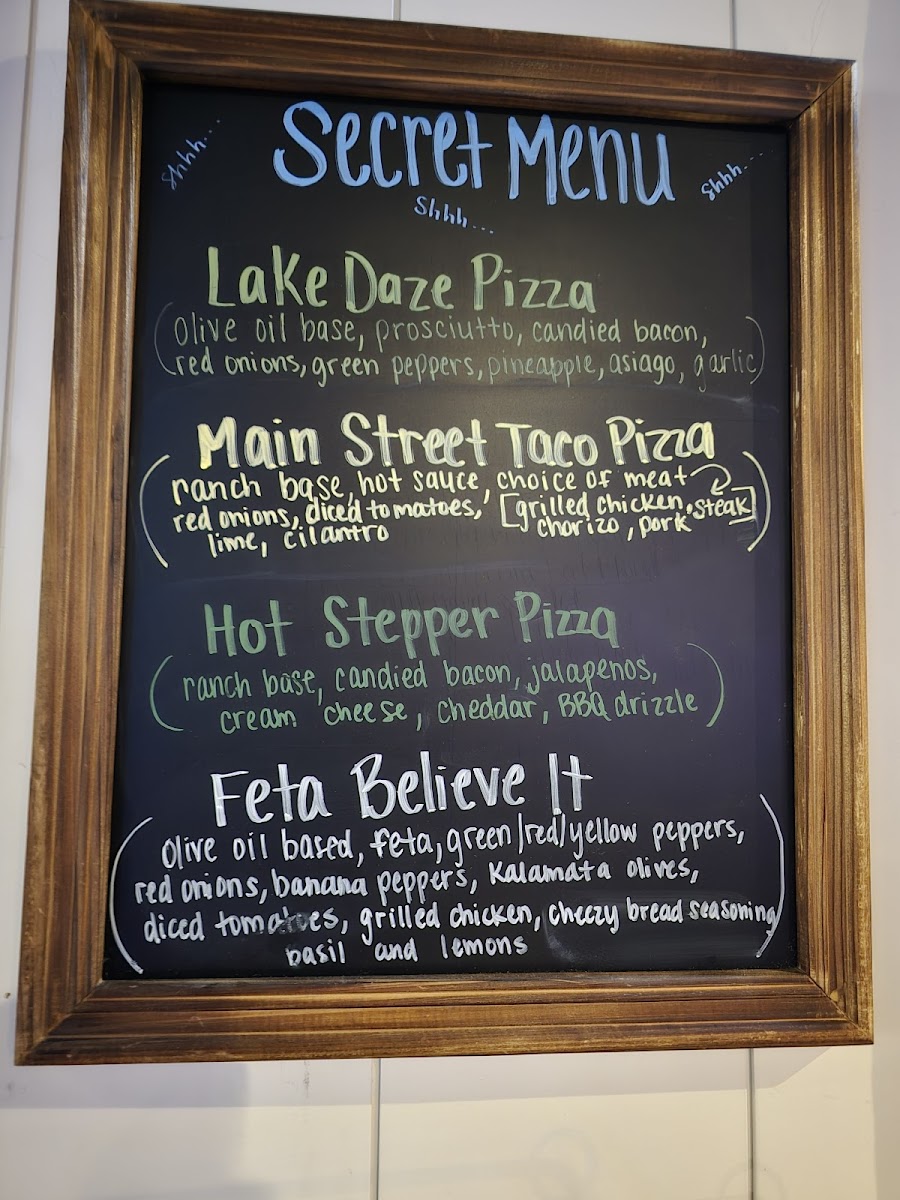 Secret Menu
Shhh...
Shhh...
Shhh...
Lake Daze Pizza
(Olive oil base, prosciutto, candied bacon,
red onions, green peppers, pineapple, asiago, garlic)
Main Street Taco Pizza
(ranch base, hot sauce, choice of meat
red onions, diced tomatoes, [grilled chicken, steak]
lime, cilantro chorizo, pork)
Hot Stepper Pizza
(ranch base, candied bacon, jalapenos,
cream cheese, cheddar, BBQ drizzle)
Feta Believe It
(Olive oil based, feta, green/red/yellow peppers,
red onions, banana peppers, Kalamata olives,
diced tomatoes, grilled chicken, cheezy bread seasoning
basil and lemons)